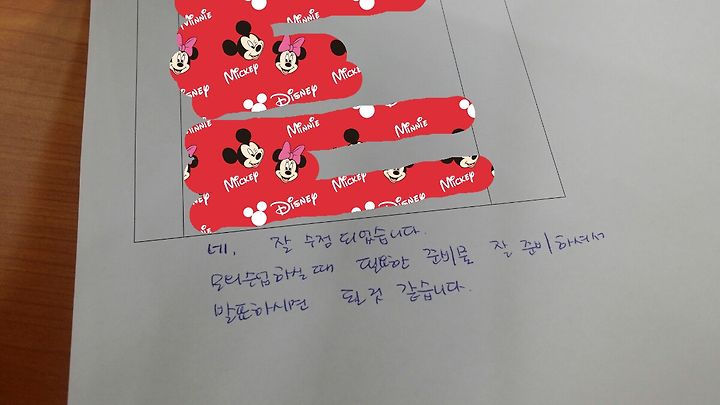 MINNIE
MICKEY
DISNEY
MINNIE
MINNIE
MICKEY
DISNEY
MICKEY
MICKEY
네. 잘 수정 되었습니다.
모의수업하실때 필요한 준비물 잘 준비하셔서
발표하시면 될 것 같습니다.